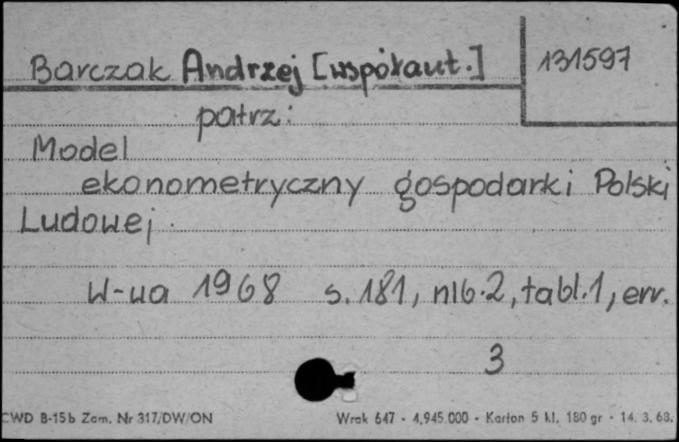 Barczak Andrzej [współaut.]
131597
patrz:
Model
ekonometryczny gospodarki Polski
Ludowej.
W-wa 1968 s. 181, nlb. 2, tabl. 1, err.
3
CWD B-15b Zam. Nr 317/DW/ON
Wrak 647 - 4.945.000 - Karton 5 kl. 180 gr - 14. 3. 68.